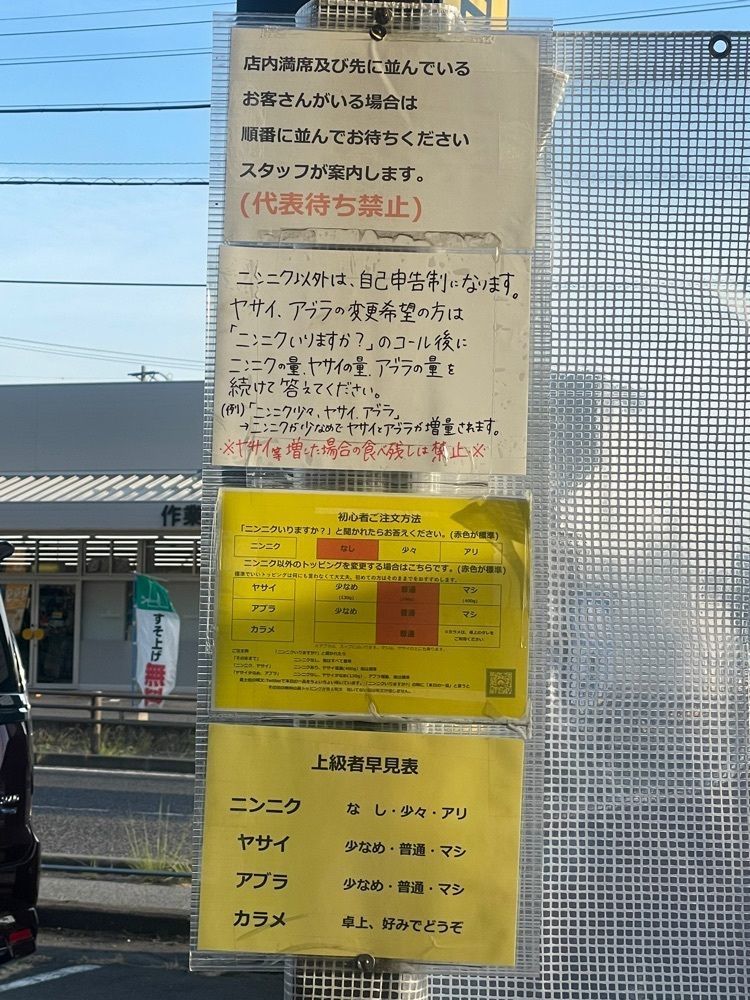 店内満席及び先に並んでいる
お客さんがいる場合は
順番に並んでお待ちください
スタッフが案内します。
(代表待ち禁止)
ニンニク以外は、自己申告制になります。
ヤサイ、アブラの変更希望の方は
「ニンニクいりますか?」のコール後に
ニンニクの量、ヤサイの量、アブラの量を
続けて答えてください。
(例)「ニンニク少々、ヤサイ、アブラ」
→ニンニクが少なめでヤサイとアブラが増量されます。
※ヤサイ等増した場合の食べ残しは禁止※
初心者ご注文方法
「ニンニクいりますか?」と聞かれたらお答えください。(赤色が標準)
ニンニク なし 少々 アリ
ニンニク以外のトッピングを変更する場合はこちらです。(赤色が標準)
標準でいいトッピングは何にも言わなくて大丈夫。初めての方はそのままでをおすすめします。
ヤサイ 少なめ 普通 マシ
(120g) (400g)
アブラ 少なめ 普通 マシ
カラメ 普通 ※カラメは、卓上のタレをご利用ください
ご注文例 「ニンニクいりますか?」と聞かれたら
上級者早見表
ニンニク なし・少々・アリ
ヤサイ 少なめ・普通・マシ
アブラ 少なめ・普通・マシ
カラメ 卓上、好みでどうぞ
作業
すそ上げ無料